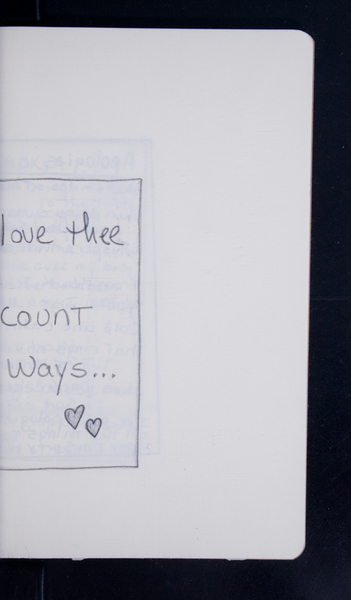 love thee
count
ways...